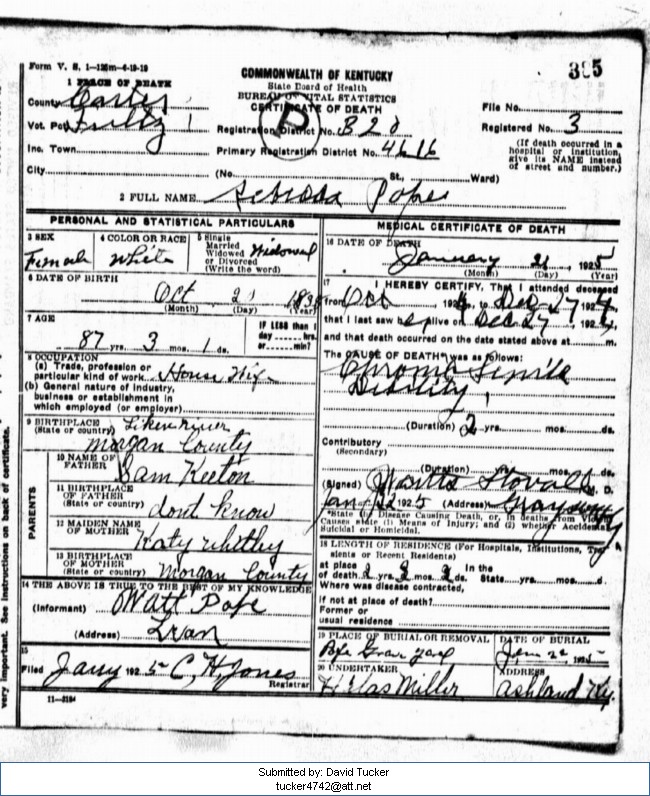 Form V. S. 1—125m—6-19-19
385
COMMONWEALTH OF KENTUCKY
State Board of Health
BUREAU OF VITAL STATISTICS
CERTIFICATE OF DEATH
P
1 PLACE OF DEATH
County Carter
Vot. Pct. Fultz 1
Inc. Town
City
Registration District No. 820
Primary Registration District No. 4616
(No. St., Ward)
File No.
Registered No. 3
(If death occurred in a
hospital or institution,
give its NAME instead
of street and number.)
2 FULL NAME Pope
PERSONAL AND STATISTICAL PARTICULARS
3 SEX
Female
4 COLOR OR RACE
White
5 Single
Married
Widowed
or Divorced
(Write the word)
Widowed
6 DATE OF BIRTH
Oct 183
(Month) (Day) (Year)
7 AGE
87 yrs. 3 mos. 1 ds.
IF LESS than 1
day hrs.
or min?
8 OCCUPATION
(a) Trade, profession or
particular kind of work House Wife
(b) General nature of industry,
business or establishment in
which employed (or employer)
9 BIRTHPLACE
(State or country)
Morgan County
PARENTS
10 NAME OF
FATHER Sam Keeton
11 BIRTHPLACE
OF FATHER
(State or country) dont know
12 MAIDEN NAME
OF MOTHER Katy Whitley
13 BIRTHPLACE
OF MOTHER
(State or country) Morgan County
14 THE ABOVE IS TRUE TO THE BEST OF MY KNOWLEDGE
(Informant) Watt Pope
(Address)
15
Filed Jany 1925 C. H. Jones
Registrar
11—3184
MEDICAL CERTIFICATE OF DEATH
16 DATE OF DEATH
January 21, 1925
(Month) (Day) (Year)
17 I HEREBY CERTIFY, That I attended deceased
from Oct 1924, to Dec 27 1924,
that I last saw her alive on Dec 27 1924,
and that death occurred on the date stated above at m.
The CAUSE OF DEATH* was as follows:
Chronic Senile
Debility
(Duration) 2 yrs. mos. ds.
Contributory
(Secondary)
(Duration) yrs. mos. ds.
(Signed) Stovall M. D.
Jan 22 1925 (Address) Grayson Ky
*State the Disease Causing Death, or, in deaths from Violent
Causes state (1) Means of Injury; and (2) whether Accidental,
Suicidal or Homicidal.
18 LENGTH OF RESIDENCE (For Hospitals, Institutions, Tran-
sients or Recent Residents)
at place In the
of death yrs. mos. ds. State yrs. mos. d.
Where was disease contracted,
if not at place of death?
Former or
usual residence
19 PLACE OF BURIAL OR REMOVAL
Pope Grave yard
DATE OF BURIAL
Jan 22, 1925
20 UNDERTAKER
Miller
ADDRESS
Ashland Ky.
very important. See instructions on back of certificate.
Submitted by: David Tucker
tucker4742@att.net